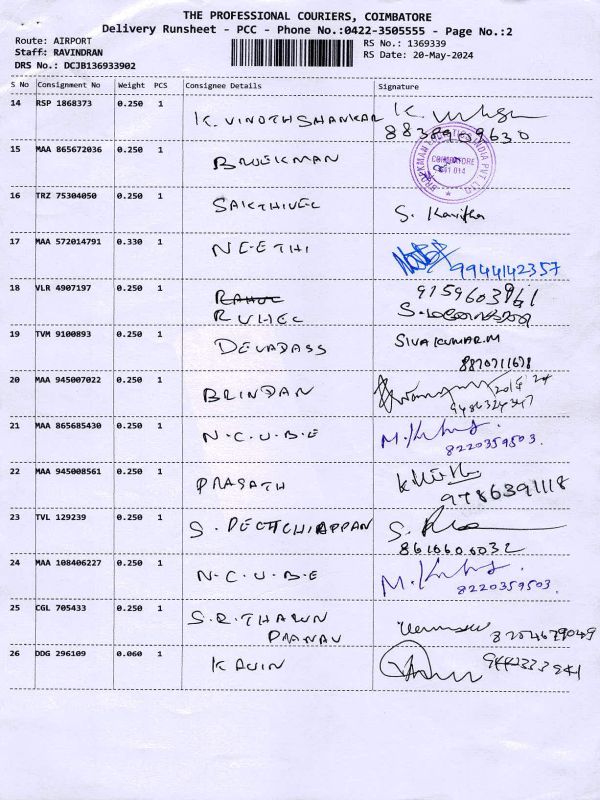 THE PROFESSIONAL COURIERS, COIMBATORE
Delivery Runsheet - PCC - Phone No.:0422-3505555 - Page No.:2
Route: AIRPORT
Staff: RAVINDRAN
DRS No.: DCJB136933902
RS No.: 1369339
RS Date: 20-May-2024
S No Consignment No Weight PCS Consignee Details Signature
14 RSP 1868373 0.250 1 K. VINOTHSHANKAR K.
15 MAA 865672036 0.250 1 BROEKMAN
COIMBATORE
16 TRZ 75304050 0.250 1 SAKTHIVEL S. Kavitha
17 MAA 572014791 0.330 1 NEETHI 9944142357
18 VLR 4907197 0.250 1 RAHUL
RUHEL
19 TVM 9100893 0.250 1 DEVADASS SIVAKUMAR.M
20 MAA 945007022 0.250 1 BRINDAN
21 MAA 865685430 0.250 1 N.C.U.B.E M.
8220359503.
22 MAA 945008561 0.250 1 PRASATH
9786391118
23 TVL 129239 0.250 1 S. S.
24 MAA 108406227 0.250 1 N.C.U.B.E M.
8220359503.
25 CGL 705433 0.250 1 S.R.THARUN
PRANAV
26 DDG 296109 0.060 1 KAVIN